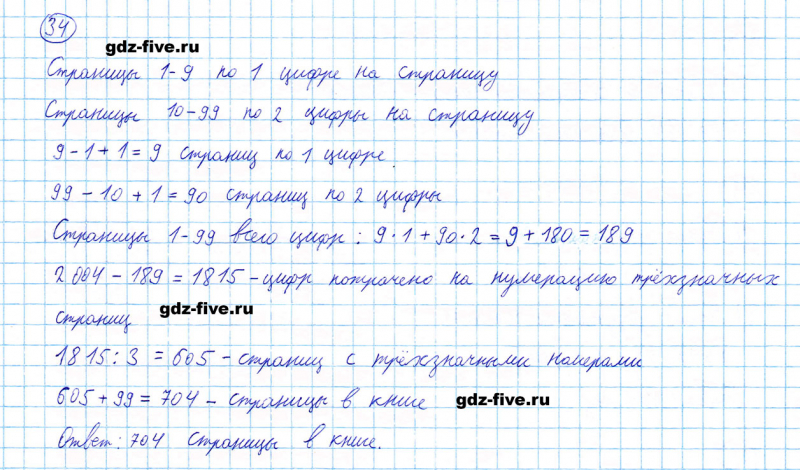 34
gdz-five.ru
Страницы 1-9 по 1 цифре на страницу
Страницы 10-99 по 2 цифры на страницу
9 - 1 + 1 = 9 страниц по 1 цифре.
99 - 10 + 1 = 90 страниц по 2 цифры
Страницы 1-99 всего цифр: 9 · 1 + 90 · 2 = 9 + 180 = 189
2 004 - 189 = 1815 - цифр потрачено на нумерацию трёхзначных
страниц
gdz-five.ru
1815 : 3 = 605 - страниц с трёхзначными номерами
605 + 99 = 704 - страницы в книге
gdz-five.ru
Ответ: 704 страницы в книге.